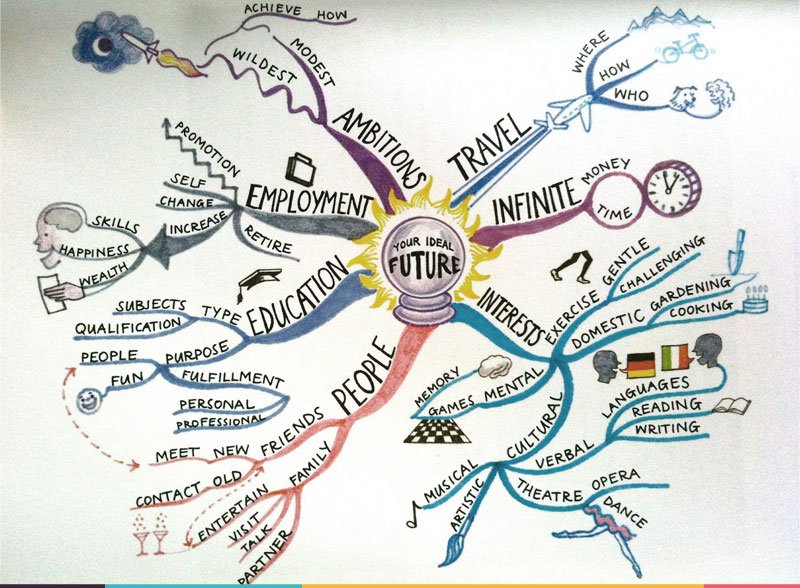 YOUR IDEAL
FUTURE
TRAVEL
WHERE
HOW
WHO
INFINITE
MONEY
TIME
INTERESTS
EXERCISE
GENTLE
CHALLENGING
DOMESTIC
GARDENING
COOKING
MENTAL
MEMORY
GAMES
CULTURAL
VERBAL
LANGUAGES
READING
WRITING
THEATRE
OPERA
DANCE
ARTISTIC
MUSICAL
PEOPLE
FRIENDS
NEW
MEET
OLD
CONTACT
FAMILY
ENTERTAIN
VISIT
TALK
PARTNER
EDUCATION
TYPE
SUBJECTS
QUALIFICATION
PURPOSE
PEOPLE
FUN
FULFILLMENT
PERSONAL
PROFESSIONAL
EMPLOYMENT
PROMOTION
SELF
CHANGE
INCREASE
SKILLS
HAPPINESS
WEALTH
RETIRE
AMBITIONS
MODEST
WILDEST
ACHIEVE HOW